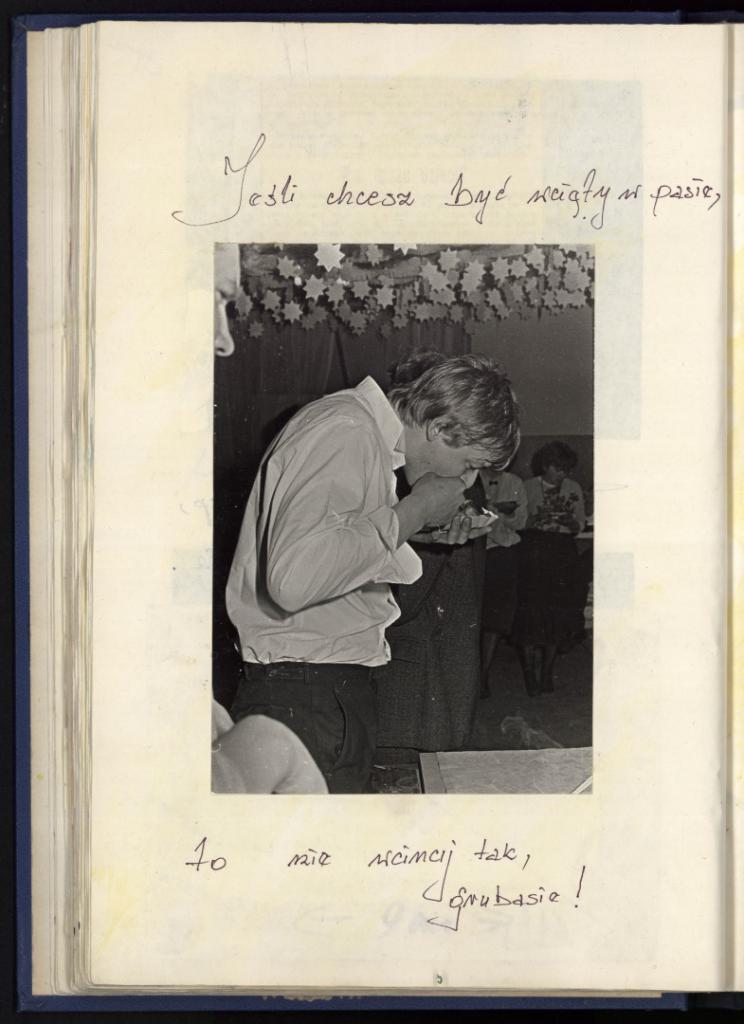 Jeśli chcesz być wcięty w pasie,
to nie wcinaj tak,
grubasie!